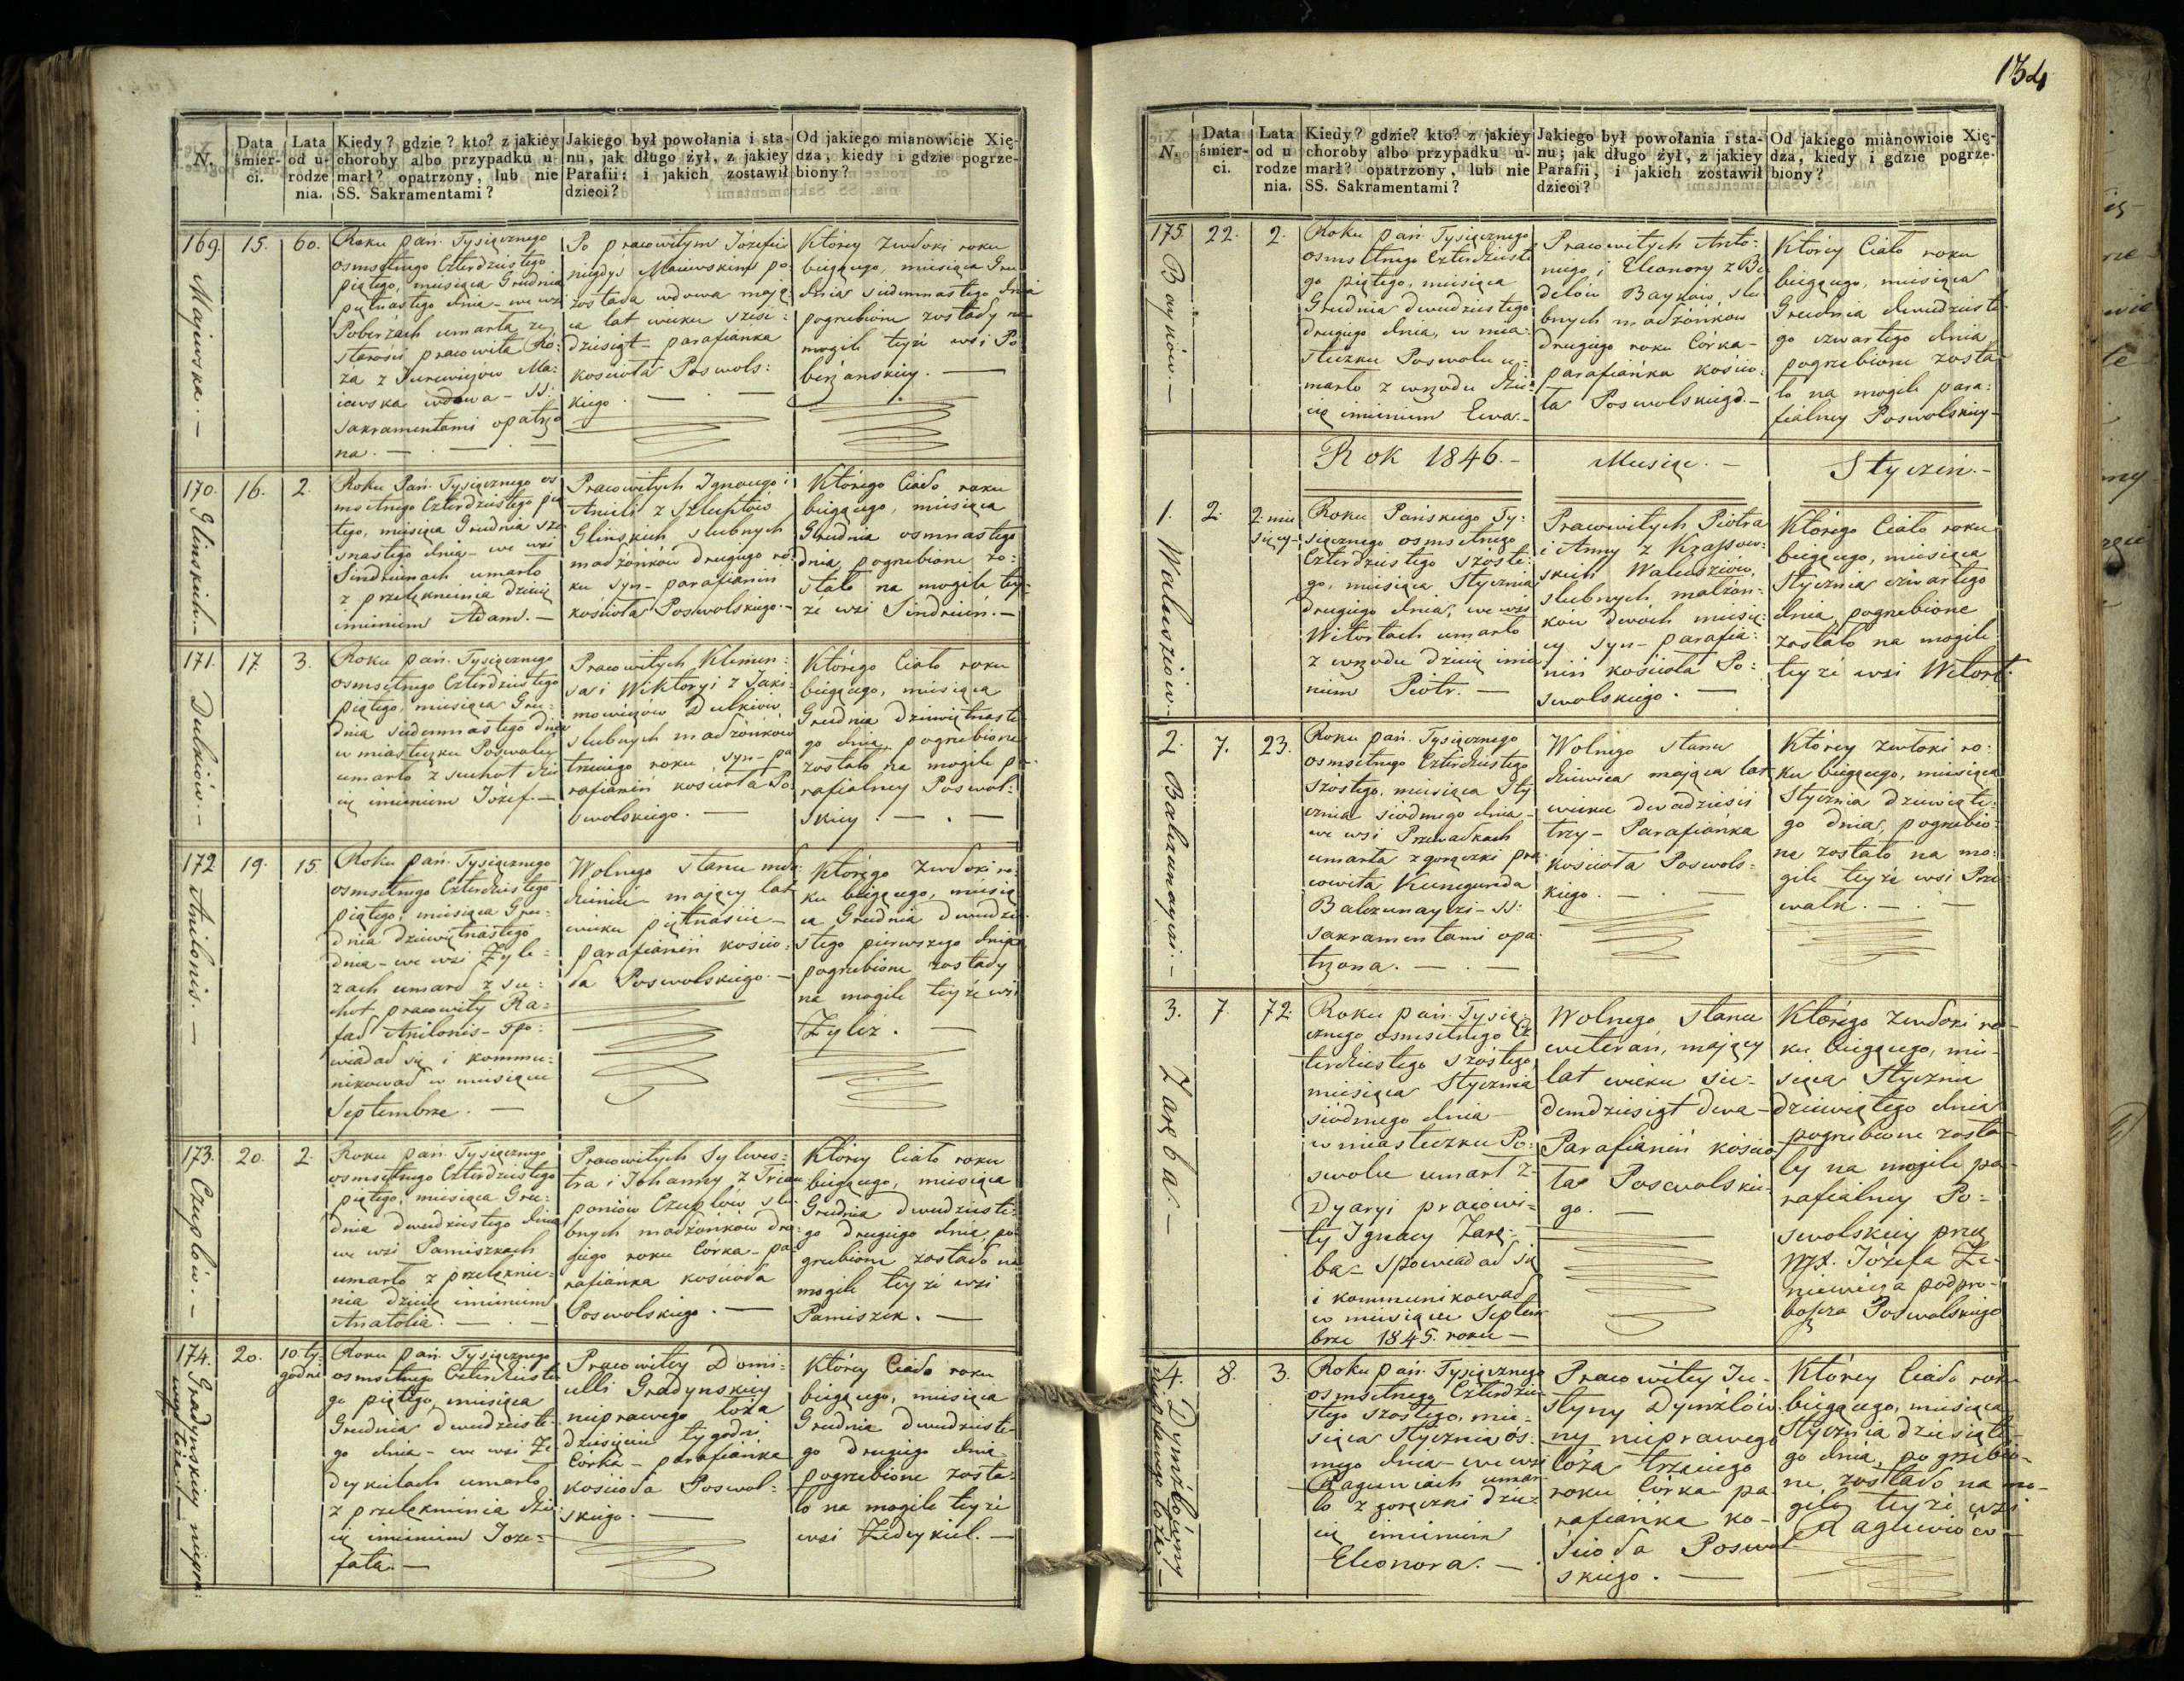 134
N.
Data śmier-ci.
Lata od u-rodze nia.
Kiedy? gdzie? kto? z jakiey
choroby albo przypadku u-
marł? opatrzony, lub nie
SS. Sakramentami?
Jakiego był powołania i sta-
nu, jak długo żył, z jakiey
Parafii: i jakich zostawił
dzieci?
Od jakiego mianowicie Xię-
dza, kiedy i gdzie pogrze-
biony?
169. Majewska. —
15.
60.
Roku pań. Tysiącznego
osmsetnego Czterdziestego
piątego, miesiąca Grudnia
piętnastego dnia - we wsi
Pobirżach umarła ze
starości pracowita Ro:
ża z Jurewiczow Ma:
iewska wdowa - SS:
Sakramentami opatrzo
na. —
Po pracowitym Józefie
niegdyś Maiewskim po
została wdowa mają
ca lat wieku sześć:
dziesiąt - parafianka
kościoła Poswols:
kiego. —
Którey zwłoki roku
biegącego, miesiąca Gru
dnia siedemnastego dnia
pogrzebione zostały na
mogile teyże wsi Po
birżanskiey. —
170. Glinskich. —
16.
2.
Roku Pań. Tysiącznego os
msetnego Czterdziestego pią
tego, miesiąca Grudnia sze
snastego dnia - we wsi
Sindriunach umarło
z przelęknienia dziecię
imieniem Adam. —
Pracowitych Ignacego i
Anieli z Szluptów
Glińskich slubnych
małżónków drugiego ro
ku syn - parafianin
kościoła Poswolskiego. —
Którego Ciało roku
biegącego, miesiąca
Grudnia osmnastego
dnia pogrzebione zo:
stało na mogile tey:
że wsi Sindriuń. —
171. Dulkiów. —
17.
3.
Roku pań. Tysiącznego
osmsetnego Czterdziestego
piątego, miesiąca Gru:
dnia siedemnastego dnia
w miasteczku Poswolu
umarło z suchot dzie
cię imieniem Józef. —
Pracowitych Klimen:
sa i Wiktoryi z Jaki:
mowiczów Dulkiów
slubnych małżónków
trzeciego roku syn - pa
rafianin kościoła Po
swolskiego. —
Którego Ciało roku
biegącego, miesiąca
Grudnia dziewiętnaste
go dnia, pogrzebione
zostało na mogile pa
rafialney Poswol:
skiey. —
172 Anilonis. —
19.
15.
Roku pań. Tysiącznego
osmsetnego Czterdziestego
piątego, miesiąca Gru:
dnia dziewiętnastego
dnia - we wsi Żyle:
zach umarł z su:
chot pracowity Ra:
fał Anilonis - spo:
wiadał się i kommu:
nikował w miesiącu
Septembrze. —
Wolnego stanu mło
dzieniec - mający lat
wieku piętnaście -
parafianin kościo:
ła Poswolskiego. —
Którego zwłoki ro:
ku biegącego, miesią
ca Grudnia dwudzie
stego pierwszego dnia
pogrzebione zostały
na mogile teyże wsi
Żyliż. —
173. Czuplów. —
20.
2.
Roku pań. Tysiącznego
osmsetnego Czterdziestego
piątego, miesiąca Gru:
dnia dwudziestego dnia
we wsi Pamiszkach
umarło z przelęknie:
nia dziecię imieniem
Anatolia. —
Pracowitych Sylwes:
tra i Johanny z
poniów Czuplów slu
bnych małżónków dru:
giego roku Córka - pa:
rafiánka kościoła
Poswolskiego. —
Którey Ciało roku
biegącego, miesiąca
Grudnia dwudzieste:
go drugiego dnia, po:
grzebione zostało na
mogile teyże wsi
Pamiszek. —
174. Gradynskiey niepra:
wego łoża. —
20.
10. ty:
godni
Roku pań. Tysiącznego
osmsetnego Czterdzieste
go piątego, miesiąca
Grudnia dwudzieste:
go dnia - we wsi Że
deykielach umarło
z przelęknienia dzie:
cię imieniem Joze:
fata. —
Pracowitey Domi:
celli Gradynskiey
nieprawego łoża
dziesięciu tygodni
Córka - parafianka
kościoła Poswol:
skiego. —
Którey Ciało roku
biegącego, miesiąca
Grudnia dwudzieste
go drugiego dnia
pogrzebione zosta:
ło na mogile teyże
wsi Żedeykiel. —
N.
Data śmier-ci.
Lata od u rodze nia.
Kiedy? gdzie? kto? z jakiey
choroby albo przypadku u-
marł? opatrzony, lub nie
SS. Sakramentami?
Jakiego był powołania i sta-
nu; jak długo żył, z jakiey
Parafii, i jakich zostawił
dzieci?
Od jakiego mianowicie Xię-
dza, kiedy i gdzie pogrze-
biony?
175. Baykiów. —
22.
2.
Roku pań. Tysiącznego
osmsetnego Czterdzieste
go piątego, miesiąca
Grudnia dwudziestego
drugiego dnia, w mia:
steczku Poswolu u:
marło z wrzodu dzie:
cię imieniem Ewa. —
Pracowitych Anto:
niego i Eleonory z Be
delów Baykiów, slu
bnych małżónków
drugiego roku Córka -
parafiánka kościo:
ła Poswolskiego. —
Którey Ciało roku
biegącego, miesiąca
Grudnia dwudzieste
go czwartego dnia
pogrzebione zosta
ło na mogile para:
fialney Poswolskiey —
Rok 1846. —
Miesiąc. —
Styczeń. —
1. Waluszów. —
2.
2. mie
sięcy —
Roku Pańskiego Ty:
siącznego osmsetnego
Czterdziestego szóste:
go, miesiąca Stycznia
drugiego dnia, we wsi
Witortach umarło
z wrzodu dziecię imie
niem Piotr. —
Pracowitych Piotra
i Anny z
skich Waluszów,
slubnych małżón:
ków dwóch miesię:
cy syn - parafia:
nin kościoła Po:
swolskiego. —
Którego Ciało roku
biegącego, miesiąca
Stycznia czwartego
dnia pogrzebione
zostało na mogile
teyże wsi Witort.
2. Balczunayczi. —
7.
23.
Roku pań. Tysiącznego
osmsetnego Czterdziestego
szóstego, miesiąca Sty
cznia siódmego dnia -
we wsi Przewałkach
umarła z gorączki pra
cowita Kunegunda
Balczunayczi - SS:
Sakramentami opa
trzona. —
Wolnego stanu
dziewica mająca lat
wieku dwadzieścia
trzy - Parafiánka
kościoła Poswols:
kiego. —
Którey zwłoki ro:
ku biegącego, miesiąca
Stycznia dziewiąte:
go dnia, pogrzebio:
ne zostało na mo:
gile teyże wsi Prze:
wałk. —
3. Zaręba. —
7.
72.
Roku pań. Tysią:
cznego osmsetnego Cz
terdziestego szóstego
miesiąca Stycznia
siódmego dnia -
w miasteczku Po:
swolu umarł z
Dyaryi pracowi:
ty Ignacy Zarę:
ba - Spowiadał się
i kommunikował
w miesiącu Septem
brze 1845. roku —
Wolnego stanu
weteran, mający
lat wieku sie:
demdziesiąt dwa -
Parafianin kościo
ła Poswolskie:
go. —
Którego zwłoki ro:
ku biegącego, mie:
siąca Stycznia
dziewiątego dnia
pogrzebione zosta:
ły na mogile pa:
rafialney Po:
swolskiey przez
Józefa Ze:
niewicza podpro:
boszcza Poswolskiego
4. Dymżlówny
nieprawego łoża. —
8.
3.
Roku pań. Tysiącznego
osmsetnego Czterdzie
stego szóstego, mie:
siąca Stycznia ós:
mego dnia - we wsi
Raguwiach umar
ło z gorączki dzie:
cię imieniem
Eleonora. —
Pracowitey Ju:
styny Dymżlów:
ny nieprawego
łoża trzeciego
roku Córka pa:
rafiánka ko:
ścioła Poswol
skiego. —
Którey Ciało roku
biegącego, miesiąca
Stycznia dziesiąte:
go dnia, pogrzebio:
ne zostało na mo:
gile teyże wsi
Raguwiów —